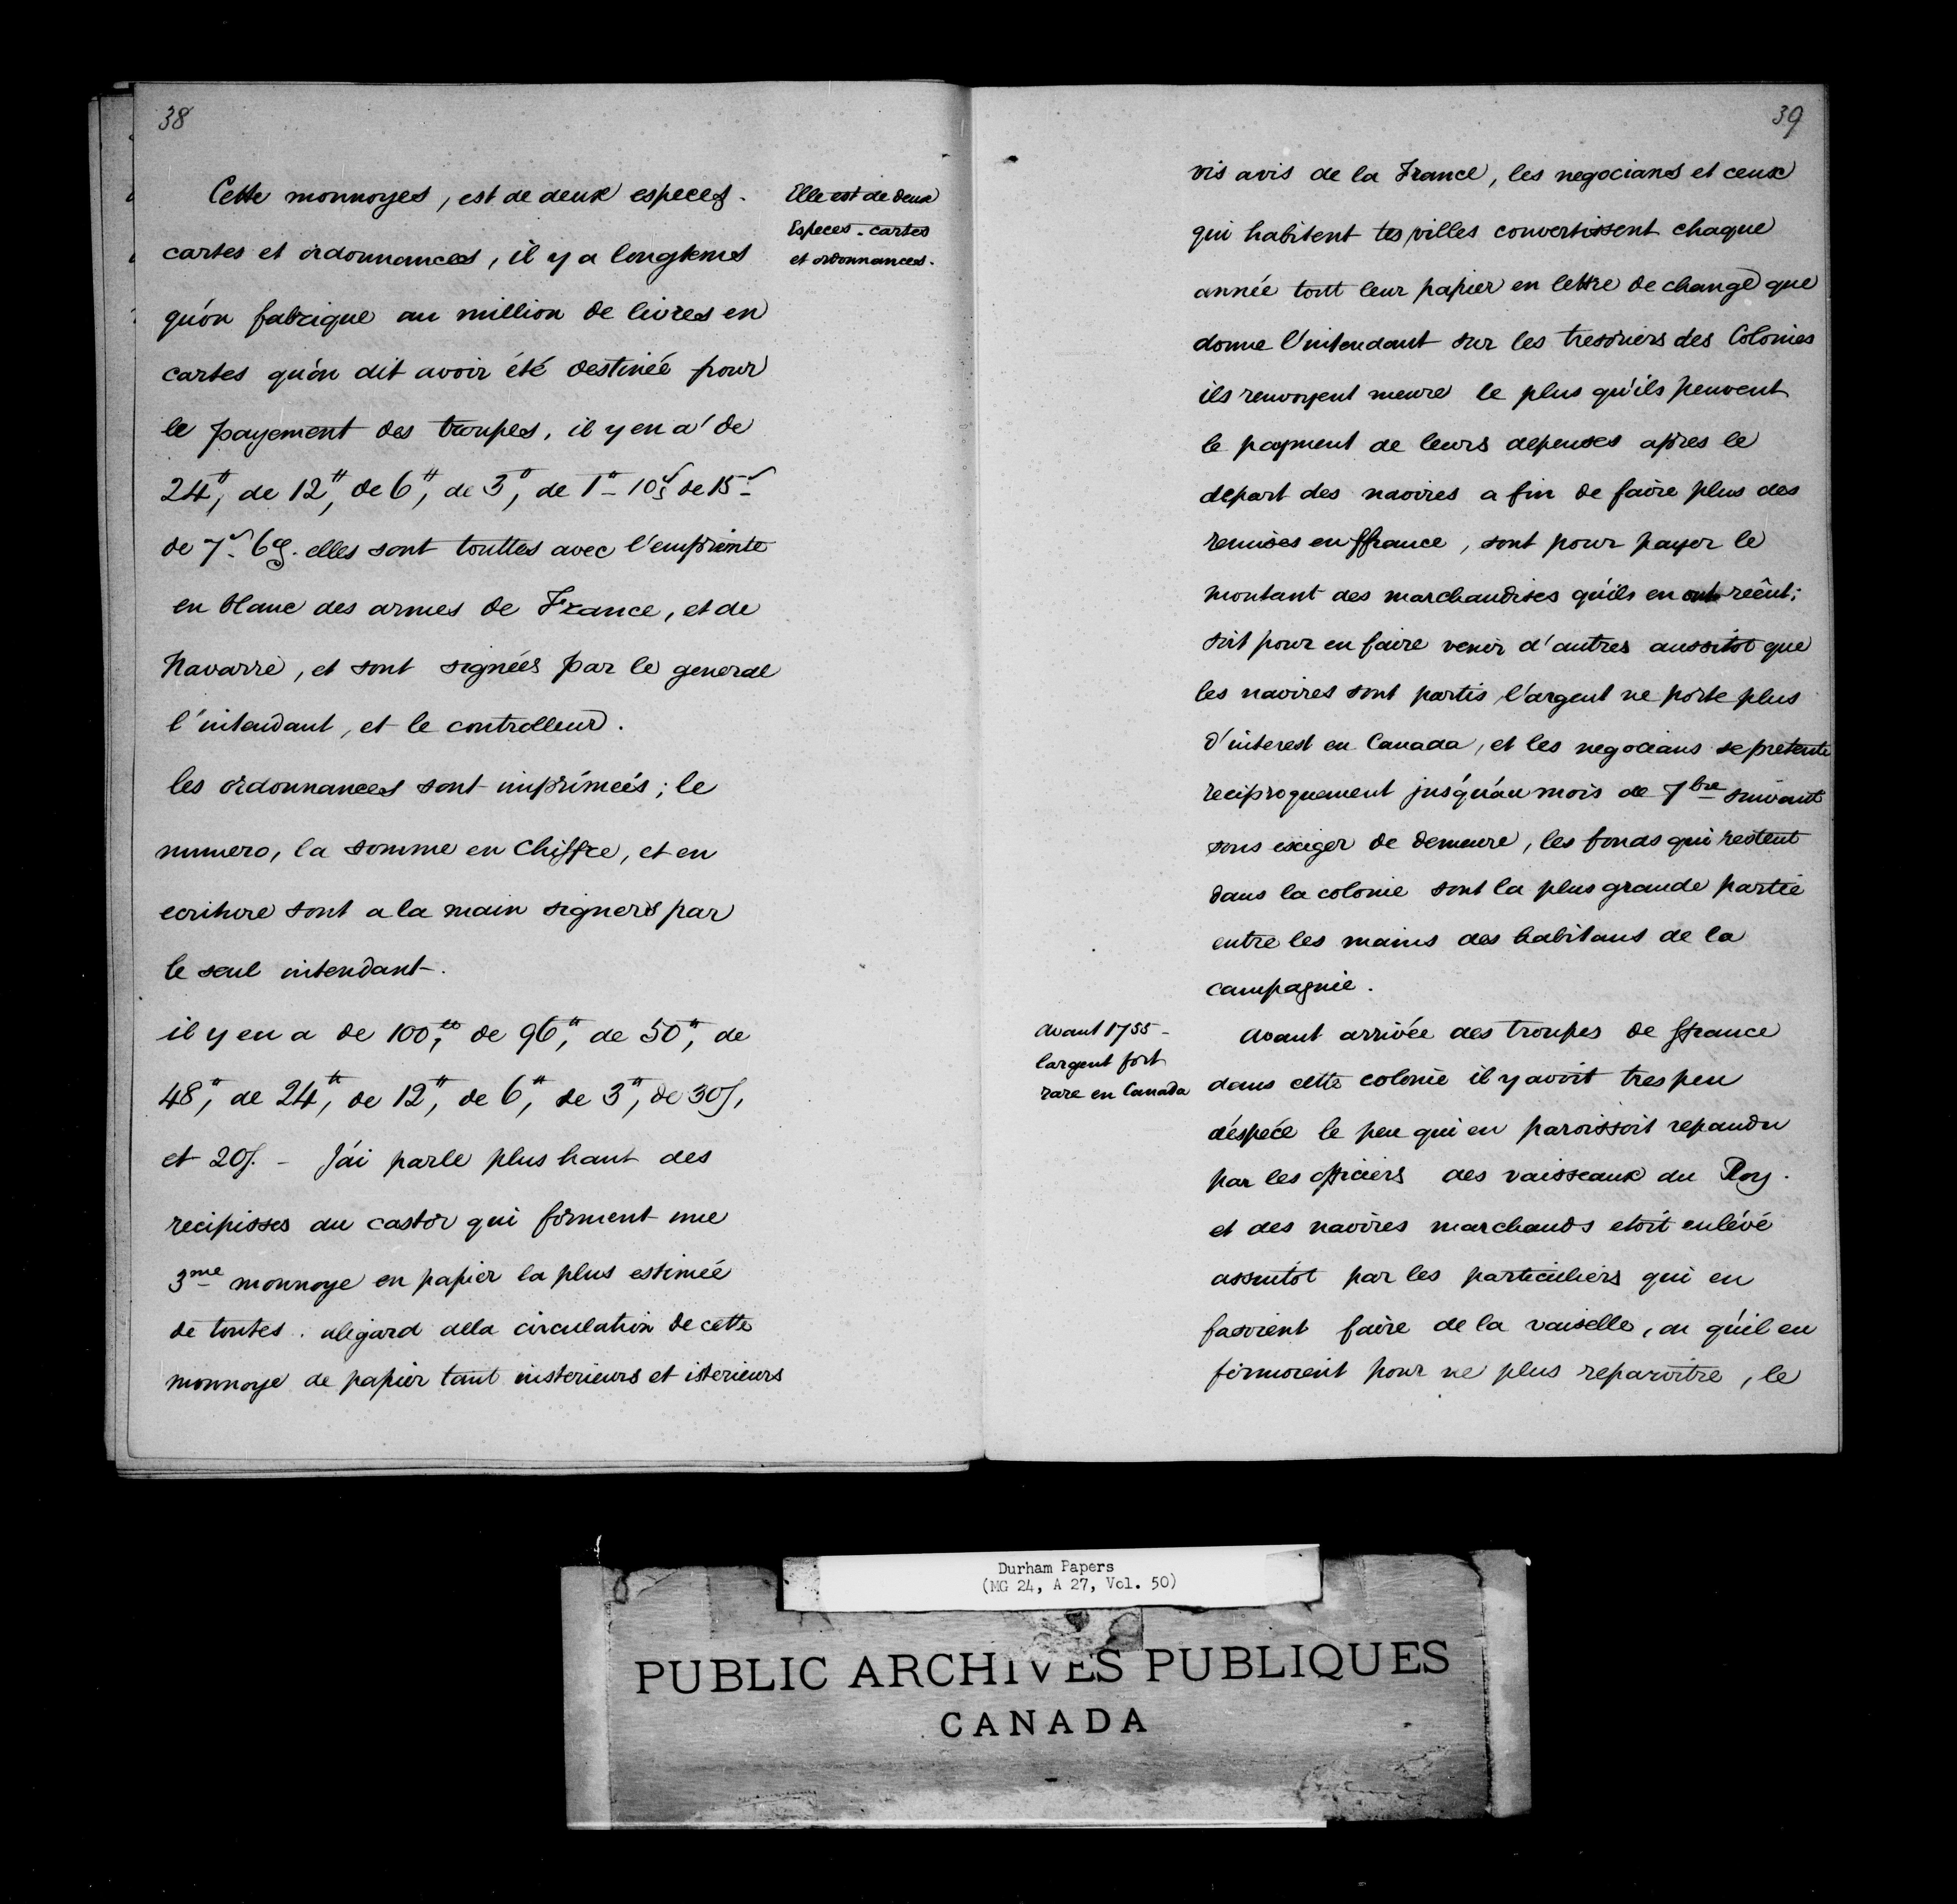 38
Cette monnoyes, est de deux especes.
cartes et ordonnances, il y a longtems
qu'on fabrique au million de livres en
cartes qu'on dit avoir été destinée pour
le payement des troupes, il y en a de
24#, de 12#, de 6#, de 3#, de 1# 10s de 15s
de 7s 6d. elles sont touttes avec l'emprimte
en blanc des armes de France, et de
Navarre, et sont signées par le general
l'intendant, et le controlleur.
les ordonnances sont imprimées; le
numero, la somme en chiffre, et en
ecriture sont a la main signers par
le seul intendant.
il y en a de 100#, de 96#, de 50#, de
48#, de 24#, de 12#, de 6#, de 3#, de 30s,
et 20s. - J'ai parle plus haut des
recipisses du castor qui forment une
3me monnoye en papier la plus estimée
de toutes. alegard della circulation de cette
monnoye de papier tant insterieurs et isterieurs
Elle est de deux
Especes - cartes
et ordonnances.
39
vis avis de la France, les negocians et ceux
qui habitent les villes convertissent chaque
année tout leur papier en lettre de change que
donne l'intendant sur les tresoriers des Colonies
ils renvoyent meure le plus qu'ils peuvent
le payment de leurs depenses apres le
depart des navires a fin de faire plus des
remises en ffrance, sont pour payer le
montant des marchandises qu'ils en ont reêut;
soit pour en faire venir d'autres aussitot que
les navires sont partis, l'argent ne porte plus
d'interest en Canada, et les negocians se pretente
reciproquement jusqu'au mois de 7bre suivant
sons exiger de demeure, les fonds qui restent
dans la colonie sont la plus grande partie
entre les mains des habitans de la
campagnie.
Avant 1755 -
largent fort
rare en Canada
Avant arrivée des troupes de ffrance
dans cette colonie il y avoit tres peu
d'espéce le peu qui en paroissoit repandu
par les officiers des vaisseaux du Roy.
et des navires marchands etoit enlévé
assutot par les particuliers qui en
fasoient faire de la vaiselle, ou qu'il en
firmoient pour ne plus reparoitre, le
Durham Papers
(MG 24, A 27, Vol. 50)
PUBLIC ARCHIVES PUBLIQUES
CANADA